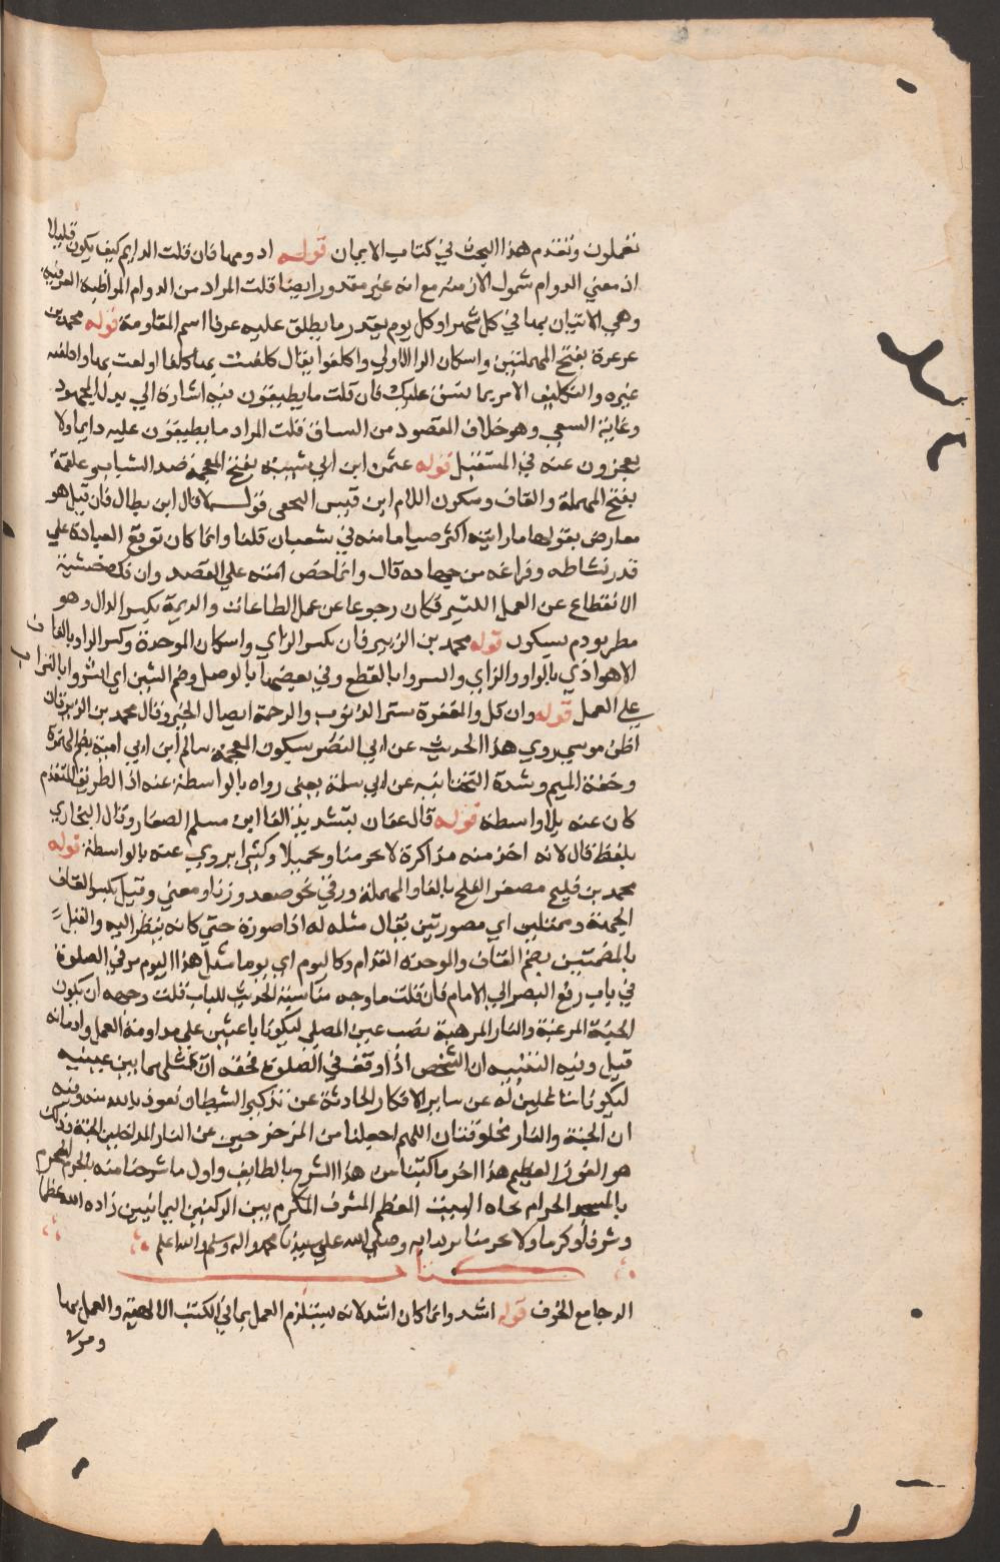 تعملون وتقدم هذا البحث في كتاب الايمان قوله ادومها فان قلت الدايم كيف يكون قليلا
اذ معني الدوام شمول الازمنه مع انه غير مقدور ايضا قلت المراد من الدوام المواظبة العرفية
وهي الاتيان بها في كل شهر او كل يوم بقدر ما يطلق عليه عرفا اسم المداومة قوله محمد بن
عرعرة بفتح المهملتين واسكان الرا الاولي واكلفوا يقال كلفت بهذا كلفا اولعت بها واكلفه
غيره والتكليف الامر بما يشق عليك فان قلت ما يطيقون فيه اشارة الي بذل المجهود
وغاية السعي وهو خلاف المقصود من السياق قلت المراد ما يطيقون عليه دايما ولا
يعجزون عنه في المستقبل قوله عثمن ابن ابي شيبة بفتح المعجمة ضد الشباب وعلقمة
بفتح المهملة والقاف وسكون اللام ابن قيس النخعي قوله قال ابن بطال فان قيل هو
معارض بقولها ما رايته اكثر صياما منه في شعبان قلنا وانما كان توقع العبادة علي
قدر نشاطه وفراغه من جهاده قال وانما حض امته علي القصد وان قل خشية
الانقطاع عن العمل الكثير فكان رجوعا عن عمل الطاعات والديمة بكسر الدال وهو
مطر يدوم بسكون قوله محمد بن الزبرقان بكسر الزاي واسكان الموحدة وكسر الراء بالقاف
الاهوازي بالواو والزاي وابشروا بالقطع وفي بعضها بالوصل وضم الشين اي ابشروا بالثواب
علي العمل قوله وان كل والمغفرة ستر الذنوب والرحمة ايصال الخير وقال محمد بن الزبرقان
اظن موسي روي هذا الحديث عن ابي النضر بسكون المعجمة سالم ابن ابي امية بضم الهمزة
وخفة الميم وشدة التحتانيه عن ابي سلمة يعني رواه بالواسطة عنه اذ الطريق المتقدم
كان عنه بلا واسطة قوله قال عفان بتشديد الفا ابن مسلم الصفار وقال البخاري
بلفظ قال لانه اخذ منه مذاكرة لا تحميلا وكثيرا يروي عنه بالواسطة قوله
محمد بن فليح مصغر الفلح بالفا والمهملة ورقي نحو صعد وزنا ومعني وقبل بكسر القاف
الجهة وممثلين اي مصورتين يقال مثله له اذا صوره حتي كانه ينظر اليه والقبل
بالضمتين بضم القاف والموحدة القدام وكاليوم اي يوما مثل هذا اليوم مر في الصلوة
في باب رفع البصر الي الامام فان قلت ما وجه مناسبة الحديث للباب قلت وجهه ان يكون
الجنة المرغبة والنار المرهبة نصب عين المصلي ليكونا باعثين علي مداومة العمل وادمانه
قيل وفيه التنبيه ان الشخص اذا وقف في الصلوة فحقه ان يمثلهما بين عينيه
ليكونا شاغلين له عن ساير الافكار الحادثة عن تذكير الشيطان نعوذ بالله منه وفيه
ان الجنة والنار مخلوقتان اللهم اجعلنا من المزحزحين عن النار المداخلين الجنة وذلك
هو الفوز العظيم هذا اخر ما كتبنا من هذا الشرح بالطايف واول ما شرحنا منه بالحرم المحرم
بالمسجد الحرام تجاه البيت المعظم المشرف المكرم بين الركنين اليمانيين زاده الله عظما
وشرفا وكرما وصلي الله علي سيدنا محمد واله وسلم والله اعلم
الرجا مع الخوف قوله اشد وانما كان اشد لانه يستلزم العمل بما في الكتب الالهية والعمل بها
ومر لا